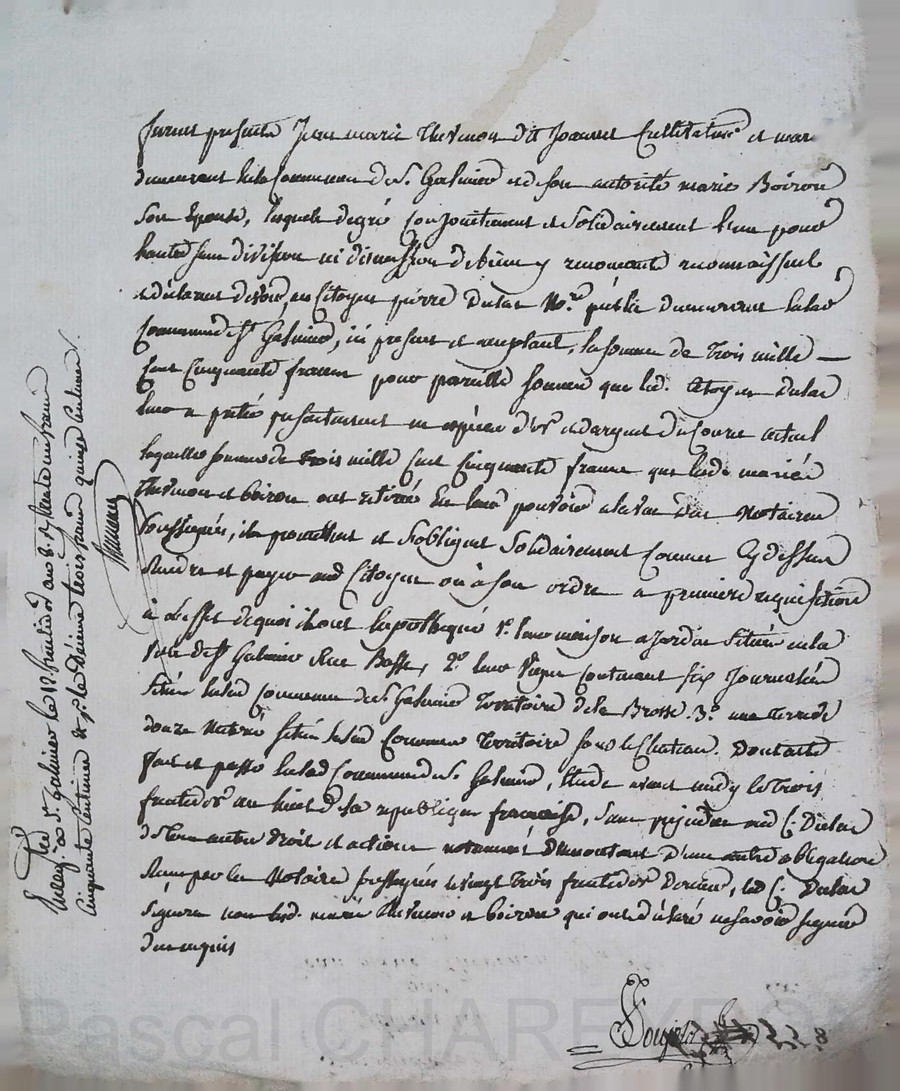 furent présents Jean marie thevenon dit Joannet Cultivateur et
demeurant en la Commune de St. Galmier et de son autorité marie Boiron
Son Epouse, lesquels de gré conjointement et Solidairement l'un pour
l'autre sans division ni discussion de bien y renonçants reconnaissent
et déclarent devoir, au Citoyen pierre Dulac No.re public demeurant en lad
Commune de St Galmier, ici présent et acceptant, la somme de trois mille
Cent Cinquante francs pour pareille somme que led. Citoyen Dulac
leur a prêtée présentement en espèces d'or et d'argent du Cours actuel
laquelle somme de trois mille Cent Cinquante francs que lesd. mariés
thevenon et boiron ont retirée En leur pouvoir à la vue des Notaires
Soussignés, ils promettent et s'obligent Solidairement Comme Cy dessus
rendre et payer aud Citoyen ou à son ordre à première réquisition
à l'effet de quoi ils ont hypothéqué 1°. leur maison et Jardin Situés en la
Ville de St Galmier Rue Basse, 2°. leur Vigne contenant six Journalées
Située en lad Commune de St. Galmier Territoire de la Brosse 3°. une terre de
douze Métérées Située en lad Commune Territoire sous le Château. Dont acte
fait et passé en lad Commune de St. Galmier, Etude avant midy le trois
fructidor an huit de la république française, Sans préjudice aud C. Dulac
de leurs autres droits et actions notamment du montant d'une autre obligation
Reçue par les Notaires soussignés le vingt trois fructidor dernier, led C. Dulac
Signera non lesd. mariés thevenon et boiron qui ont déclaré ne savoir signer
de ce requis
Enreg. à St. Galmier le 12 fructidor an 8. Reçu trente un francs
Cinquante Centimes & p.r le Dixième trois francs quinze Centimes.